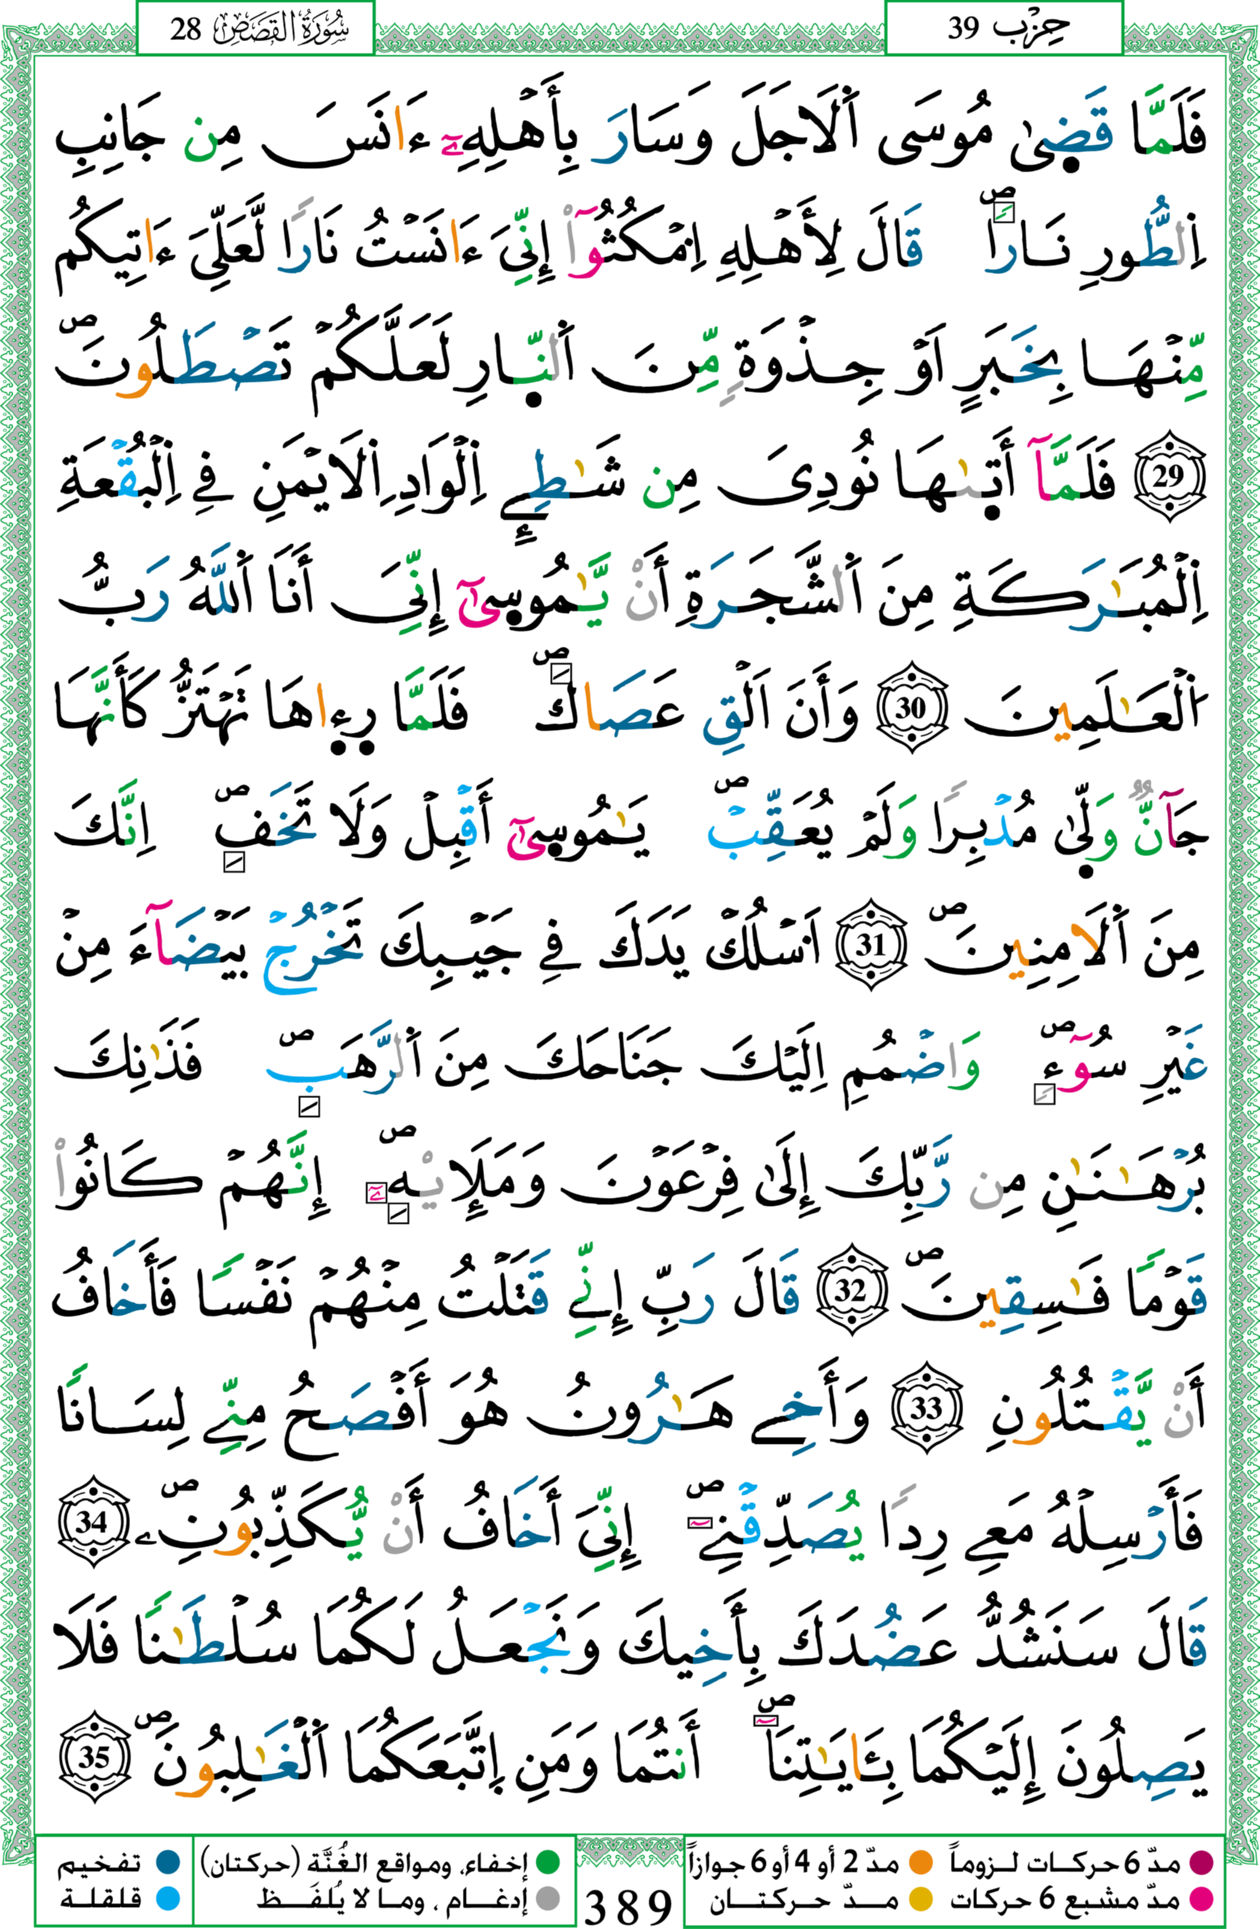 سُورَةُ القَصَصِ 28
حِزْب 39
فَلَمَّا قَضِىٰ مُوسَى اَ۬لَاجَلَ وَسَارَ بِأَهْلِهِۦٓ ءَانَسَ مِن جَانِبِ
اِ۬لطُّورِ نَارًاۖ قَالَ لِأَهْلِهِ اِ۟مْكُثُوٓاْ إِنِّىَ ءَانَسْتُ نَارًا لَّعَلِّىَ ءَاتِيكُم
مِّنْهَا بِخَبَرٍ اَوْ جِذْوَةٍ مِّنَ اَ۬لنّ۪ارِ لَعَلَّكُمْ تَصْطَلُونَۖ
29 فَلَمَّآ أَت۪ىٰهَا نُودِىَ مِن شَٰطِۓِ اِ۬لْوَادِ اِ۬لَايْمَنِ فِے اِ۬لْبُقْعَةِ
اِ۬لْمُبَٰرَكَةِ مِنَ اَ۬لشَّجَرَةِ أَنْ يَّٰمُوس۪ىٰٓ إِنِّىَ أَنَا اَ۬للَّهُ رَبُّ
اُ۬لْعَٰلَمِينَ 30 وَأَنَ اَلْقِ عَصَاكَۖ فَلَمَّا ر۪ء۪اهَا تَهْتَزُّ كَأَنَّهَا
جَآنٌّ وَلّ۪ىٰ مُدْبِرًا وَلَمْ يُعَقِّبْۖ يَٰمُوس۪ىٰٓ أَقْبِلْ وَلَا تَخَفِۖ اِنَّكَ
مِنَ اَ۬لَامِنِينَۖ 31 اَ۟سْلُكْ يَدَكَ فِے جَيْبِكَ تَخْرُجْ بَيْضَآءَ مِنْ
غَيْرِ سُوٓءٍۖ وَاضْمُمِ اِلَيْكَ جَنَاحَكَ مِنَ اَ۬لرَّهَبِۖ فَذَٰنِكَ
بُرْهَٰنَٰنِ مِن رَّبِّكَ إِلَىٰ فِرْعَوْنَ وَمَلَإِيْهِۦٓۖ إِنَّهُمْ كَانُواْ
قَوْمًا فَٰسِقِينَۖ 32 قَالَ رَبِّ إِنِّے قَتَلْتُ مِنْهُمْ نَفْسًا فَأَخَافُ
أَنْ يَّقْتُلُونِ 33 وَأَخِے هَٰرُونُ هُوَ أَفْصَحُ مِنِّے لِسَانًا
فَأَرْسِلْهُ مَعِے رِدًا يُصَدِّقْنِےۖ إِنِّىَ أَخَافُ أَنْ يُّكَذِّبُونِۦۖ 34
قَالَ سَنَشُدُّ عَضُدَكَ بِأَخِيكَ وَنَجْعَلُ لَكُمَا سُلْطَٰنًا فَلَا
يَصِلُونَ إِلَيْكُمَا بِـَٔايَٰتِنَاۖ أَنتُمَا وَمَنِ اِ۪تَّبَعَكُمَا اَ۬لْغَٰلِبُونَۖ 35
مدّ 6 حركات لـزوماً مدّ 2 أو 4 أو 6 جوازاً إخفاء، ومواقع الغُنَّة (حركتان) تفخيم
مدّ مشبع 6 حركات مـدّ حـركتـان إدغـام ، ومـا لا يُلفَـظ قلقلة
389